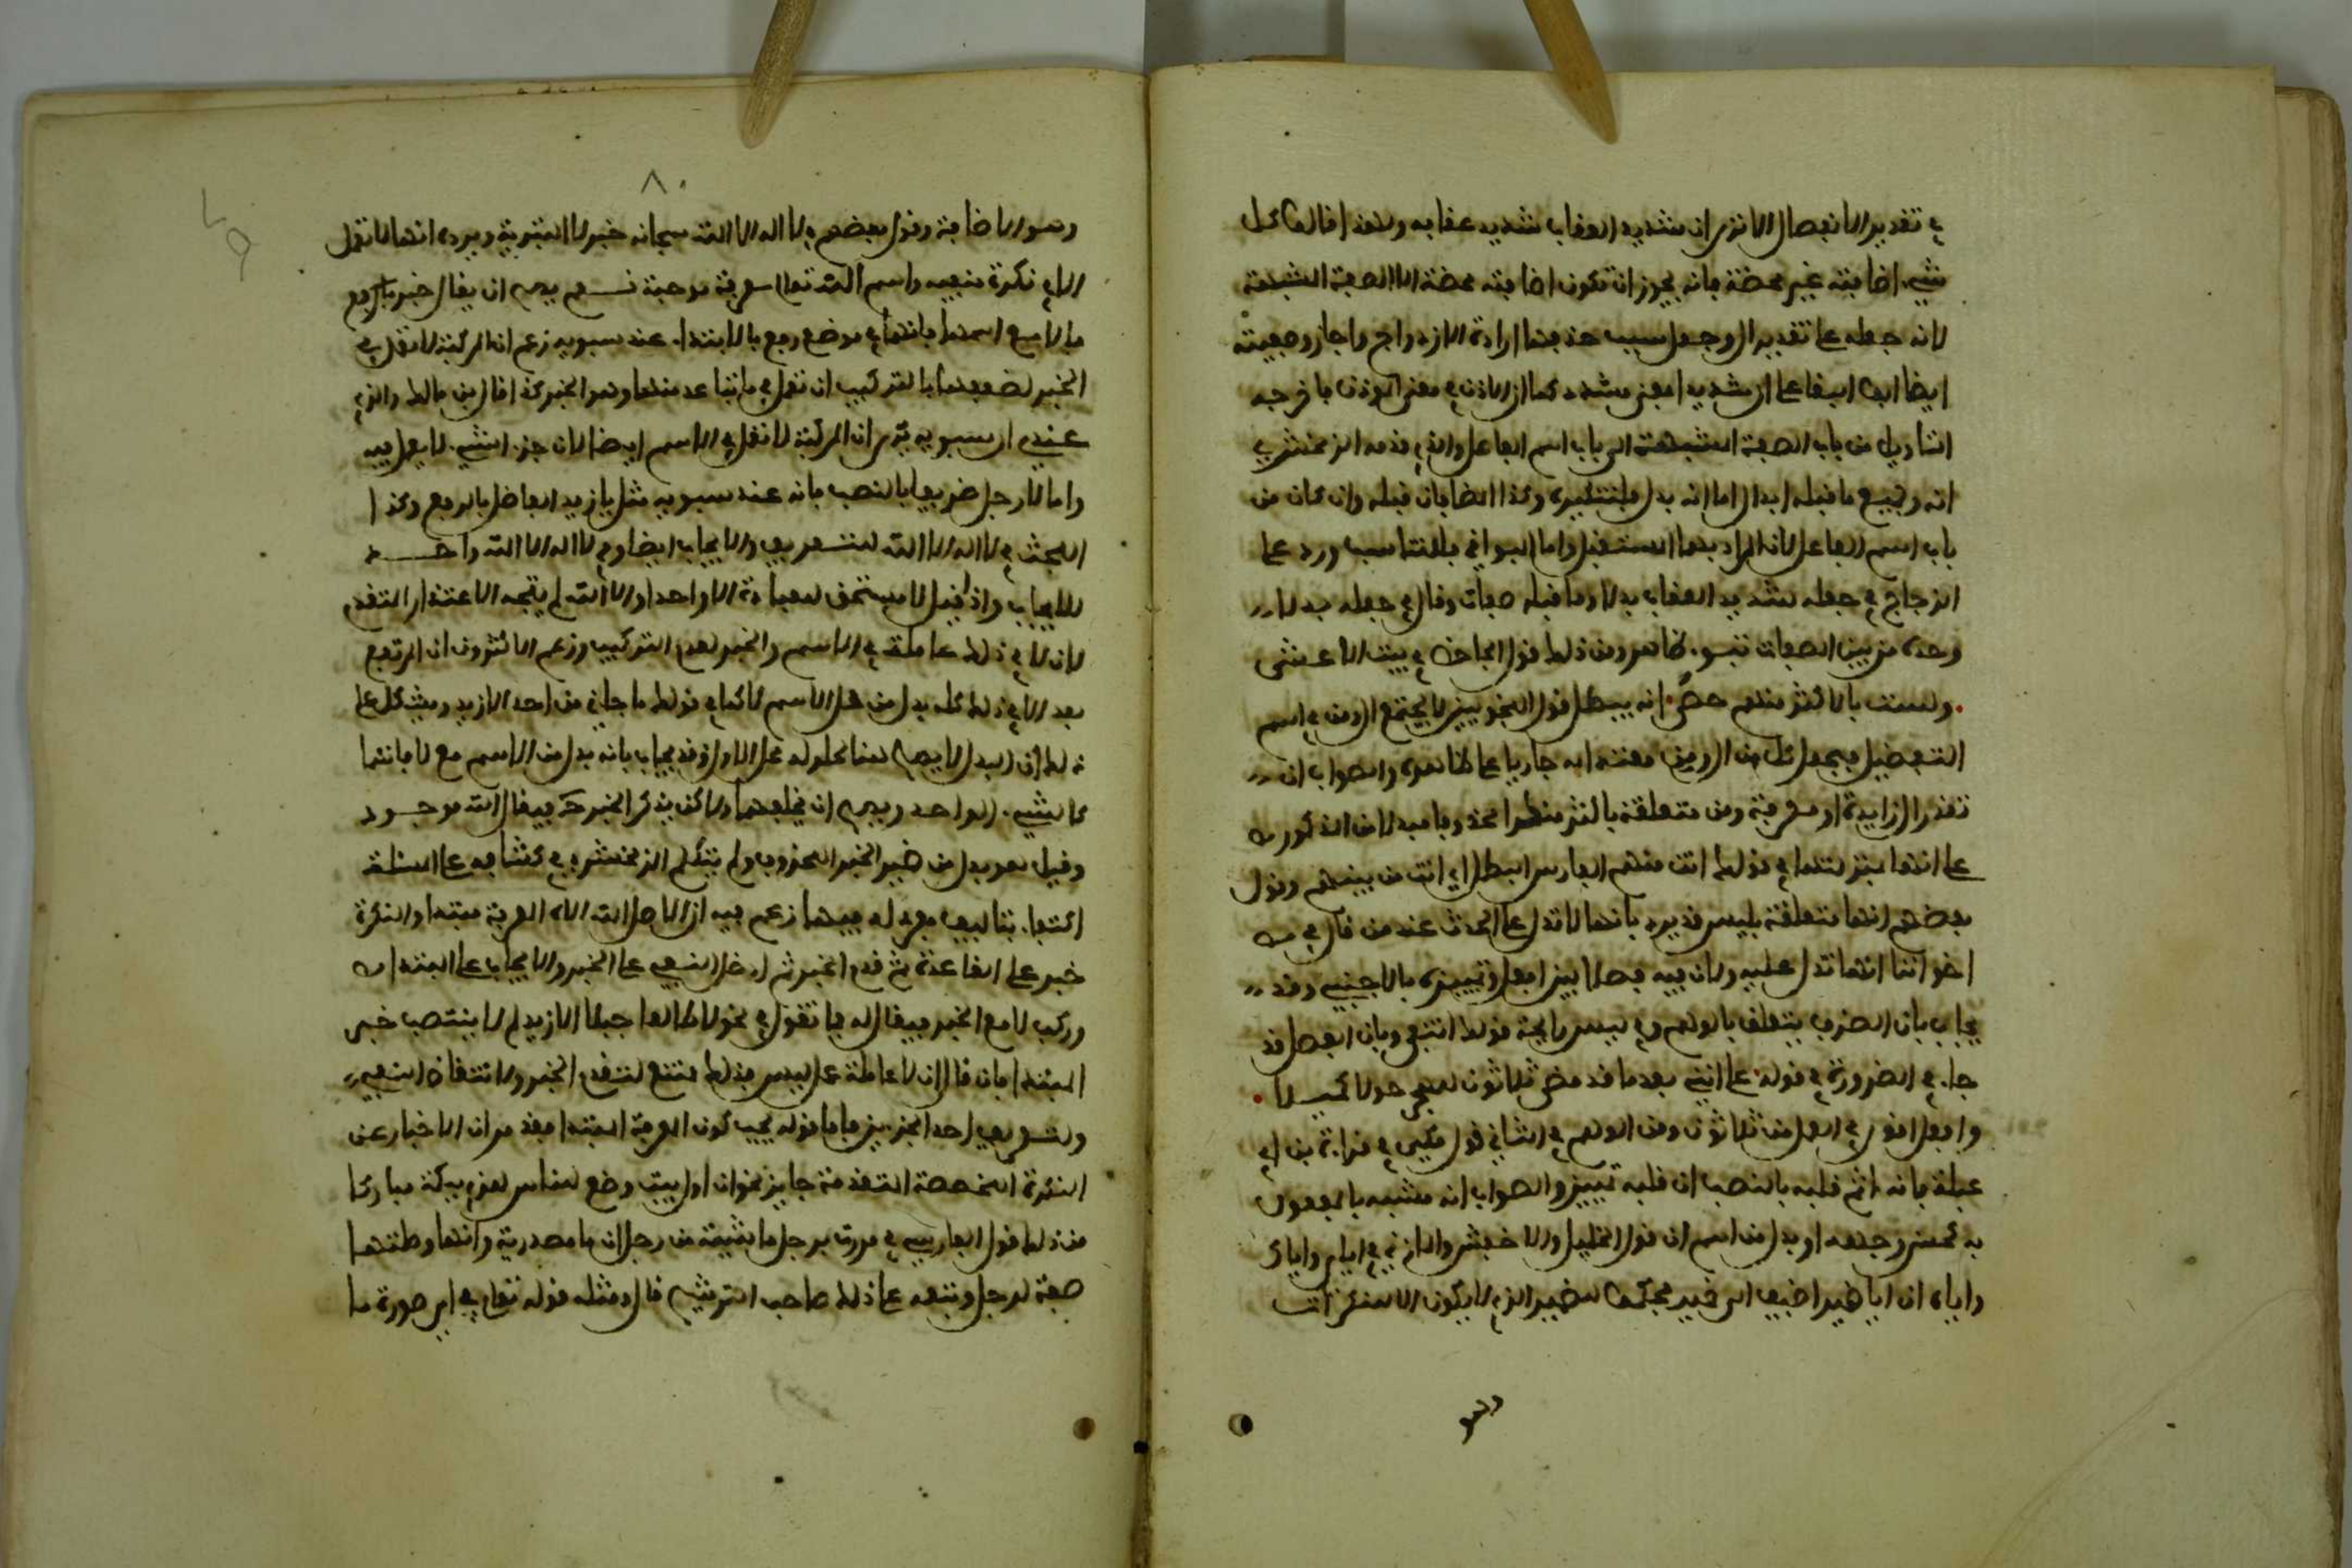 في تقدير الانفصال الا ترى ان شديد العقاب شديد عقابه ولهذا قالوا كل
شيء اضافته غير محضة فانه يجوز ان تكون اضافته محضة الا الصفة المشبهة
لانه جعله على تقدير ال وجعل سبب حذفها ارادة الازدواج واجاز وصفيته
ايضا ابو البقا على ان شديد بمعنى مشدد كما ان الاذين في معنى المؤذن فاخرجه
بالتاويل من باب الصفة المشبهة الى باب اسم الفاعل والذي قدمه الزمخشري
انه وجميع ما قبله ابدال اما انه بدل فلتنكيره وكذا المضافان قبله وان كان من
باب اسم الفاعل لان المراد بهما المستقبل واما البواقي فللتناسب ورد على
الزجاج في جعله شديد العقاب بدلا وما قبله صفات وقال في جعله بدلا
وحده من بين الصفات نبو ظاهر ومن ذلك قول الجاحظ في بيت الاعشى
ولست بالاكثر منهم حصى انه يبطل قول النحويين لا تجتمع ال ومن في اسم
التفضيل فجعل كل من ال ومن معتدا به جاريا على ظاهره والصواب ان
تقدر ال زايدة او معرفة ومن متعلقة باكثر منكرا محذوفا مبدلا من المذكور
على انها بمنزلتها في قولك انت منهم الفارس البطل اي انت من بينهم وقول
بعضهم انها متعلقة بليس قد يرد بانها لا تدل على الحدث عند من قال في
اخواتها انها تدل عليه ولان فيه فصلا بين افعل وتمييزه بالاجنبي وقد
يجاب بان الظرف يتعلق بالوهم وفي ليس رايحة قولك انتفى وبان الفصل قد
جاء في الضرورة في قوله على انني بعدما قد مضى ثلاثون للهجر حولا كميلا
وافعل اقوى في العمل من ثلاثون ومن الوهم في الثاني قول مكي في قراءة بن ابي
عبلة فانه اثم قلبه بالنصب ان قلبه تمييز والصواب انه مشبه بالمفعول
به كحسن وجهه او بدل من اسم ان وقول الخليل والاخفش والمازني في اياي واياك
واياه ان ايا ضمير اضيف الى ضمير فحكموا للضمير الذي لا يكون الا معرفة
وهو الاضافة وقول بعضهم في لا اله الا الله سبحانه خبر لا التبرية ويرده انها لا تعمل
الا في نكرة منفية واسم الله تعالى معرفة موجبة نعم يصح ان يقال خبر بالرفع
مالا مع اسمها فانهما في موضع رفع بالابتداء عند سيبويه زعم ان المركبة لا تعمل في
الخبر لضعفها بالتركيب ان تعمل فيما تباعد منها وهو الخبر كذا قال بن مالك والذي
عندي ان سيبويه يرى ان المركبة لا تعمل في الاسم ايضا لان جزء الشيء لا يعمل فيه
واما لا رجل ضريفا بالنصب فانه عند سيبويه مثل يا زيد الفاضل بالرفع وكذا
البحث في لا اله الا الله للتعريف والايجاب ايضا وفي لا اله الا الله واحد
للايجاب واذا قيل لا مستحق للعبادة الا واحد او الا الله لم يتجه الاعتذار المتقدم
لان لا في ذلك عاملة في الاسم والخبر لعدم التركيب وزعم الاكثرون ان المرتفع
بعد الا في ذلك كله بدل من محل الاسم لا كما في قولك ما جاني من احد الا زيد ويشكل على
ذلك ان البدل لا يصح هنا محلوله محل الاول وقد يجاب بانه بدل من الاسم مع لا فانهما
كالشيء الواحد ويصح ان يخلفهما ولاكن يذكر الخبر ح فيقال الله موجود
وقيل هو بدل من ضمير الخبر المحذوف ولم يتكلم الزمخشري في كشافه على المسئلة
اكتفاء بتاليف مفرد له فيها زعم فيه ان الاصل الله اله المعرفة مبتدا والنكرة
خبر على القاعدة ثم قدم الخبر ثم ادخل النفي على الخبر والايجاب على المبتدا
وركب لا مع الخبر فيقال له فما تقول في نحو لا طالعا جبلا الا زيد لم لا ينتصب خبر
المبتدا فان قال ان لا عاملة عمل ليس فذلك ممتنع لتقدم الخبر ولانتقاض النفي
ولتعريف احد الجزءين فاما قوله يجب كون المعرفة المبتدا فقد مر ان الاخبار عن
النكرة المخصصة المتقدمة جايز نحو ان اول بيت وضع للناس للذي ببكة مباركا
من ذلك قول الفارسي في مررت برجل ما شيت من رجل ان ما مصدرية وانها وصلتها
صفة لرجل وتبعه على ذلك صاحب الترشيح قال ومثله قوله تعالى في اي صورة ما